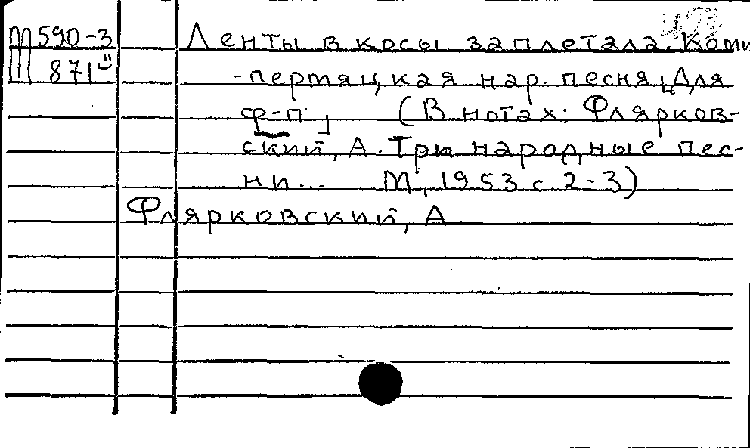 М 590-3 Ленты в косы заплетала. Коми
М 871 -пермяцкая нар. песня, [Для
ф-п.] (В нотах: Флярков-
ский, А. Три народные пес-
ни... М., 1953 с 2-3)
Флярковский, А